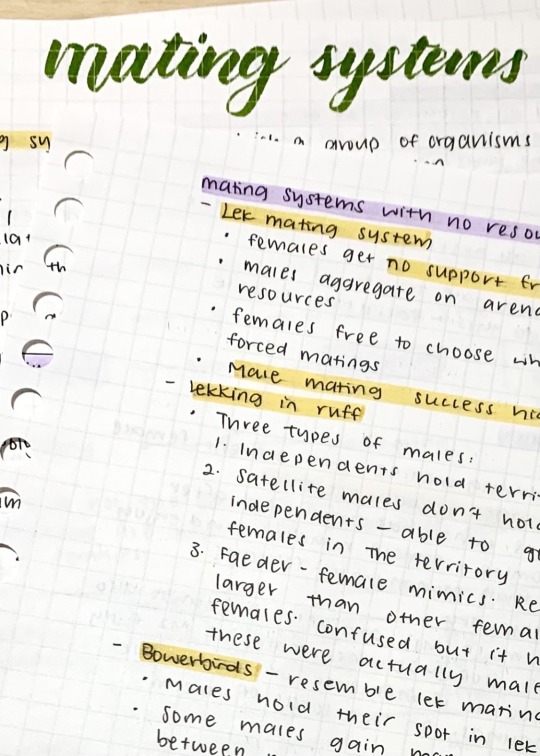 mating systems
group of organisms
mating systems with no resou
- Lek mating system
• females get no support fr
• males aggregate on arena
resources
• females free to choose wh
forced matings
• Male mating success hig
- Lekking in ruff
• Three types of males:
1. Independents hold territ
2. Satellite males don't hold
independents - able to
females in the territory
3. Faeder - female mimics. Re
larger than other femal
females. Confused but it
these were actually male
- Bowerbirds - resemble lek mating
• Males hold their spot in lek
• Some males gain
between